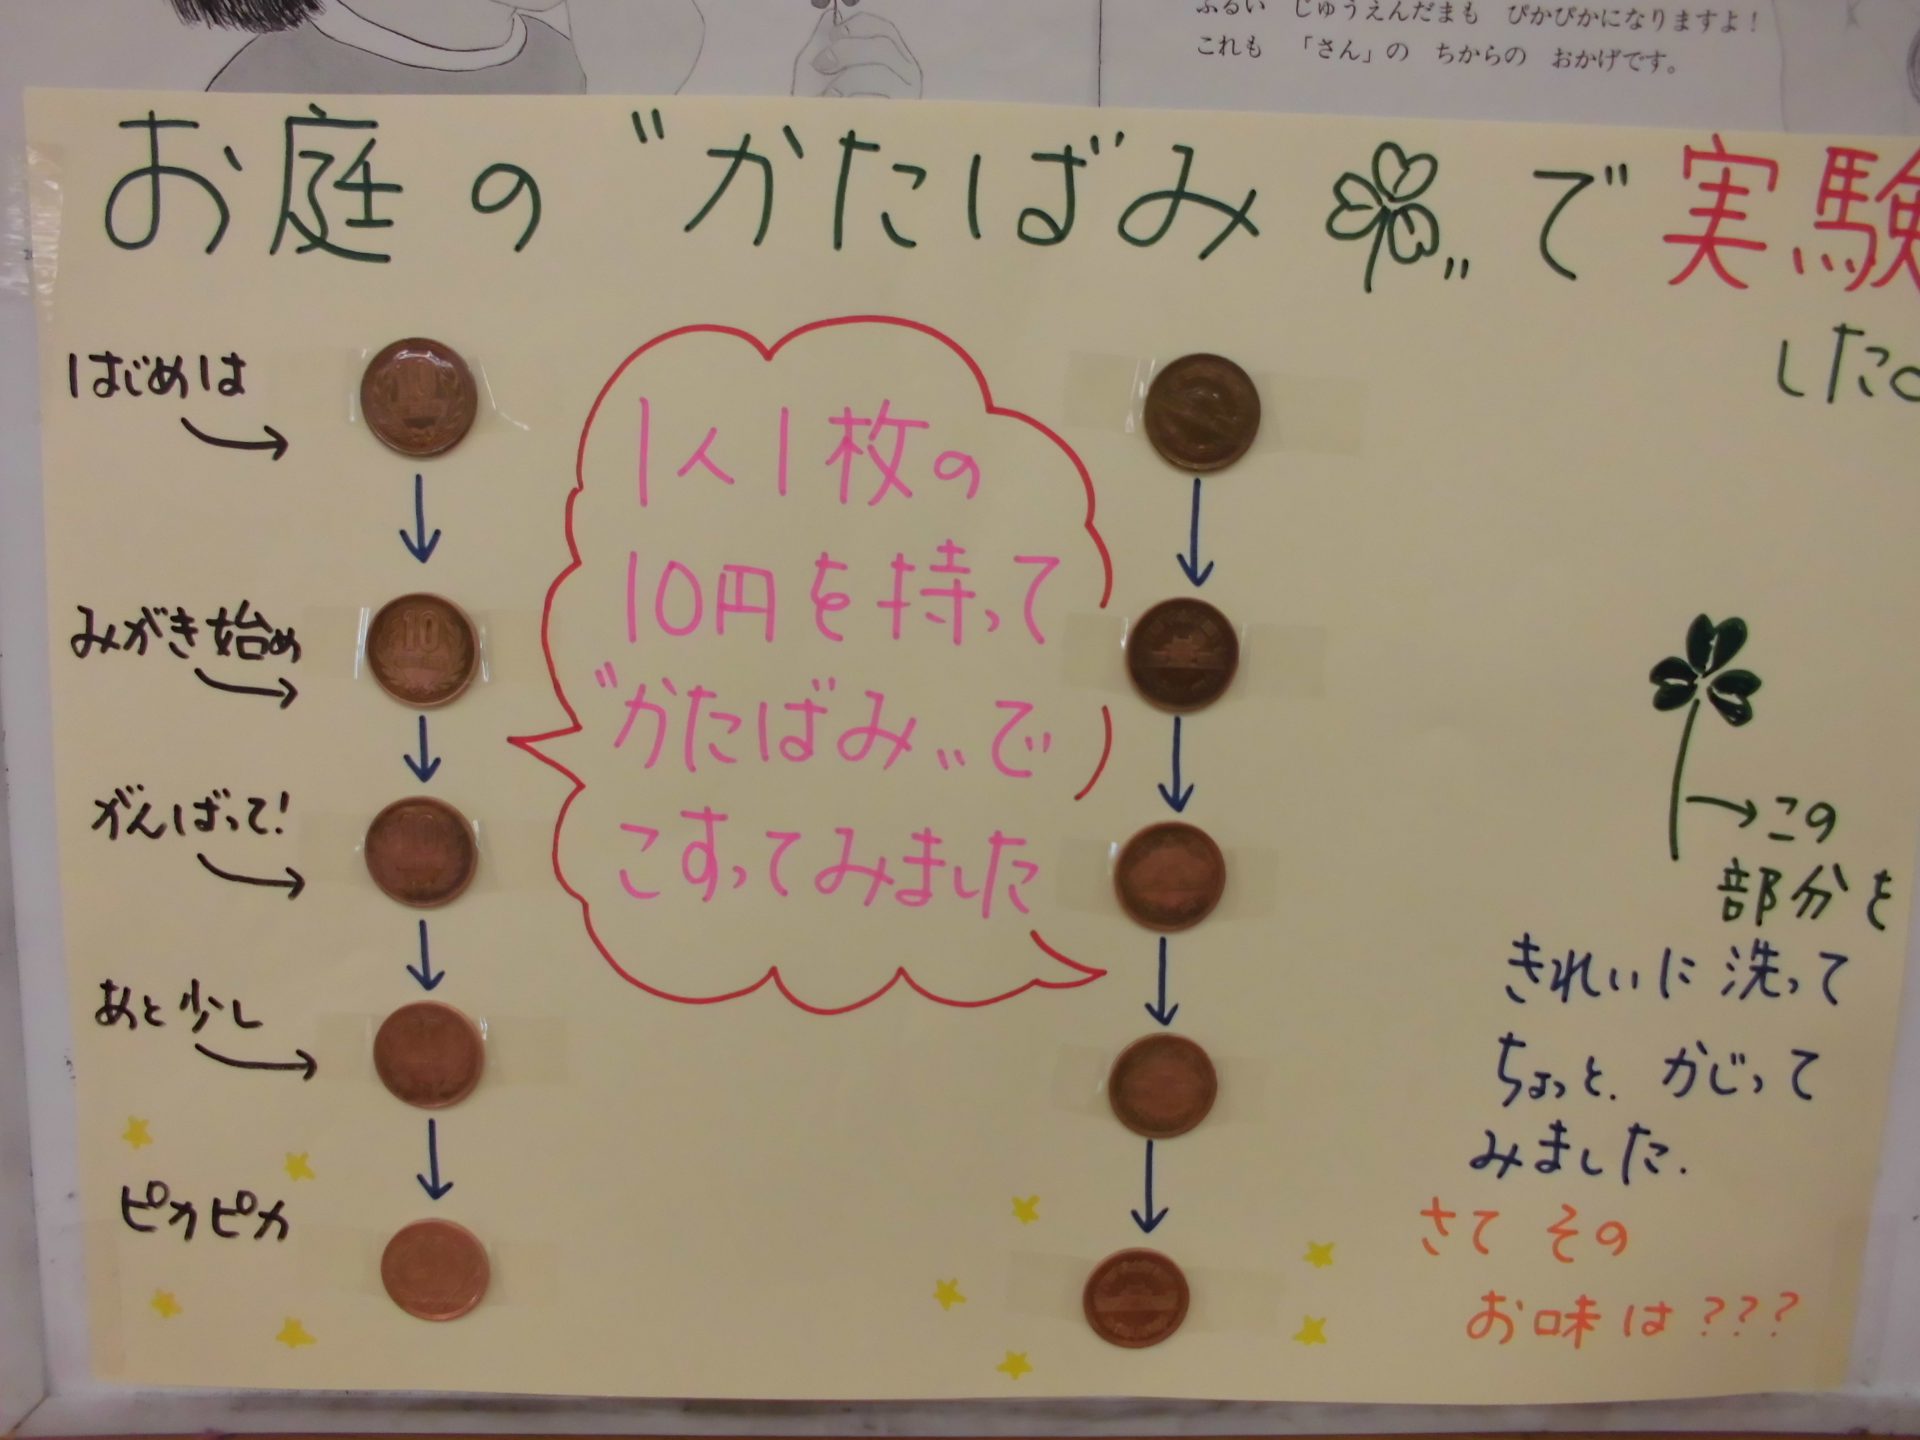 ふるい じゅうえんだまも ぴかぴかになりますよ!
これも 「さん」の ちからの おかげです。
お庭の "かたばみ" で実験
した。
はじめは
みがき始め
がんばって!
あと少し
ピカピカ
1人1枚の
10円を持って
"かたばみ"で
こすってみました
この
部分を
きれいに洗って
ちょっと、かじって
みました。
さて その
お味は???
10
10
10